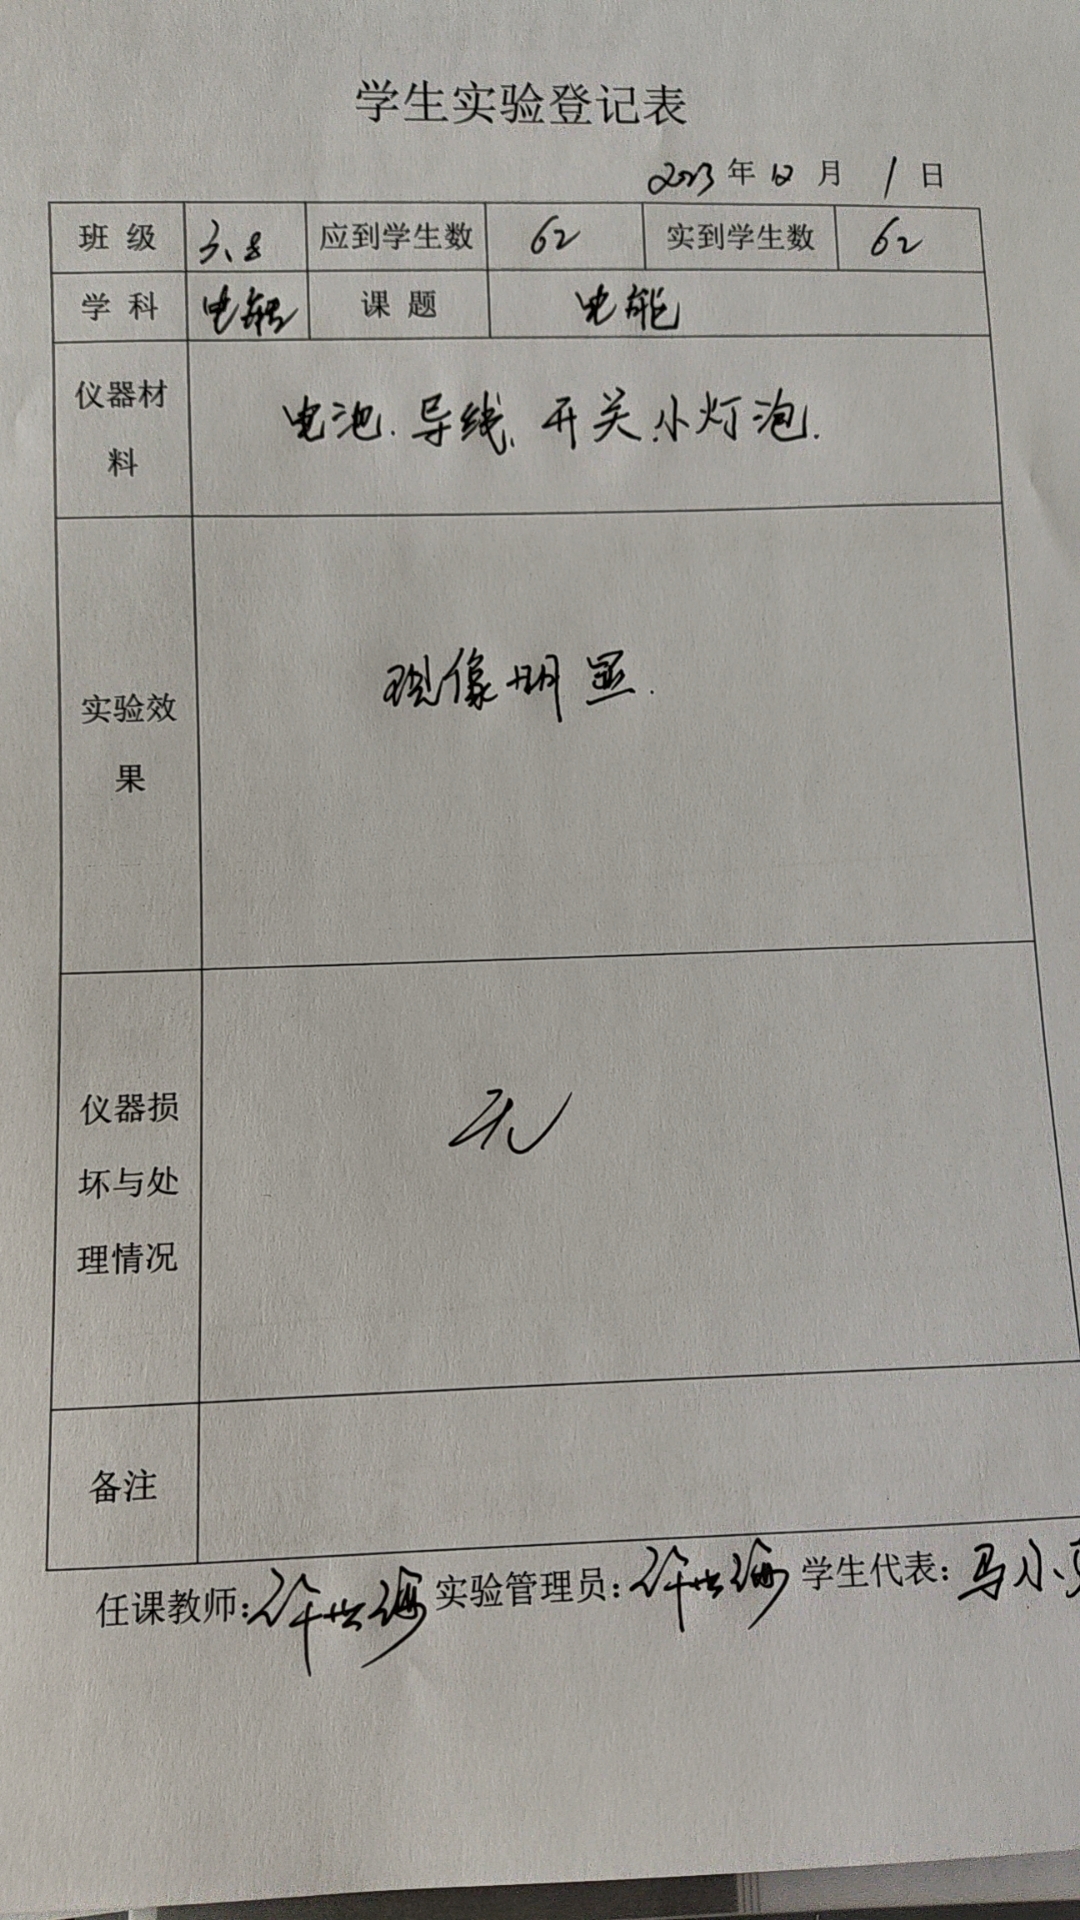 学生实验登记表
2023年12月1日
班级 3.8 应到学生数 62 实到学生数 62
学科 电能 课题 电能
仪器材料 电池、导线、开关、小灯泡.
实验效果 现像明显.
仪器损坏与处理情况 无
备注
任课教师:许世海 实验管理员:许世海 学生代表:马小